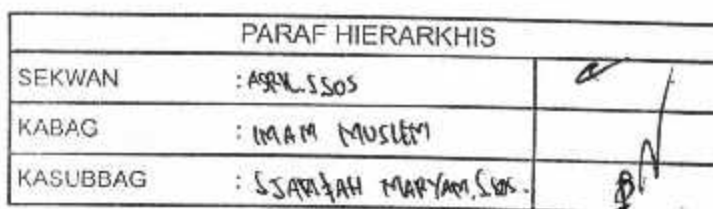 PARAF HIERARKHIS
SEKWAN : ASRIL.SSOS
KABAG : IMAM MUSLEM
KASUBBAG : SJARIFAH MARYAM, S.SOS.